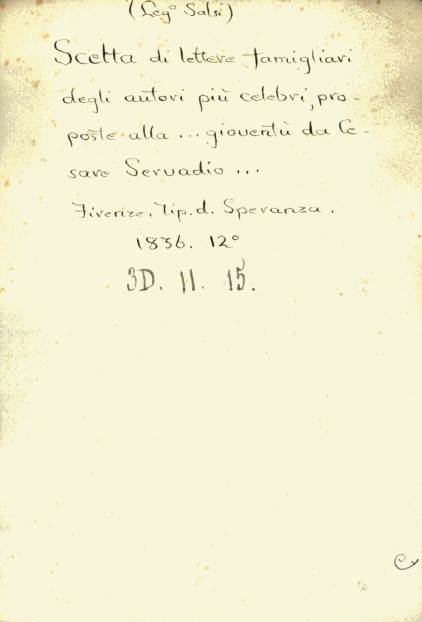 (Leg° Salsi)
Scetta di lettere famigliari
degli autori più celebri, pro-
poste alla ... gioventù da Ce-
sare Servadio ...
Firenze. Tip. d. Speranza.
1836. 12°
3D. 11. 15.